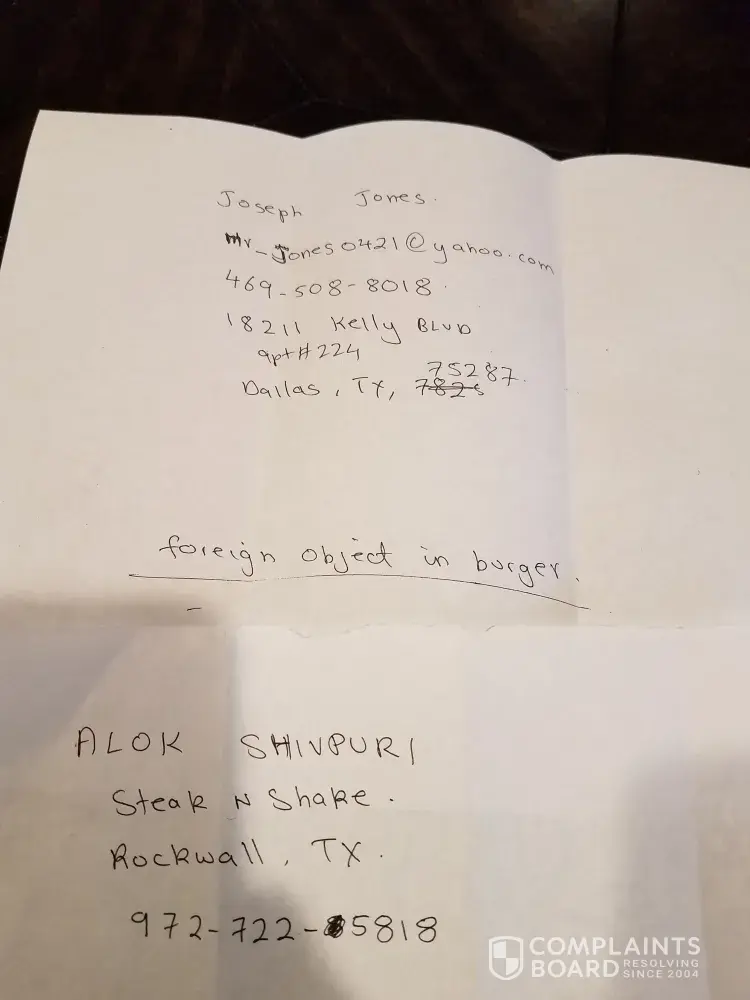 Joseph Jones.
Mr_Jones0421@yahoo.com
469-508-8018.
18211 Kelly BLVD
apt#224
75287.
Dallas, TX,
foreign object in burger.
ALOK SHIVPURI
Steak N Shake.
Rockwall, TX.
972-722-5818
COMPLAINTS
BOARD RESOLVING
SINCE 2004